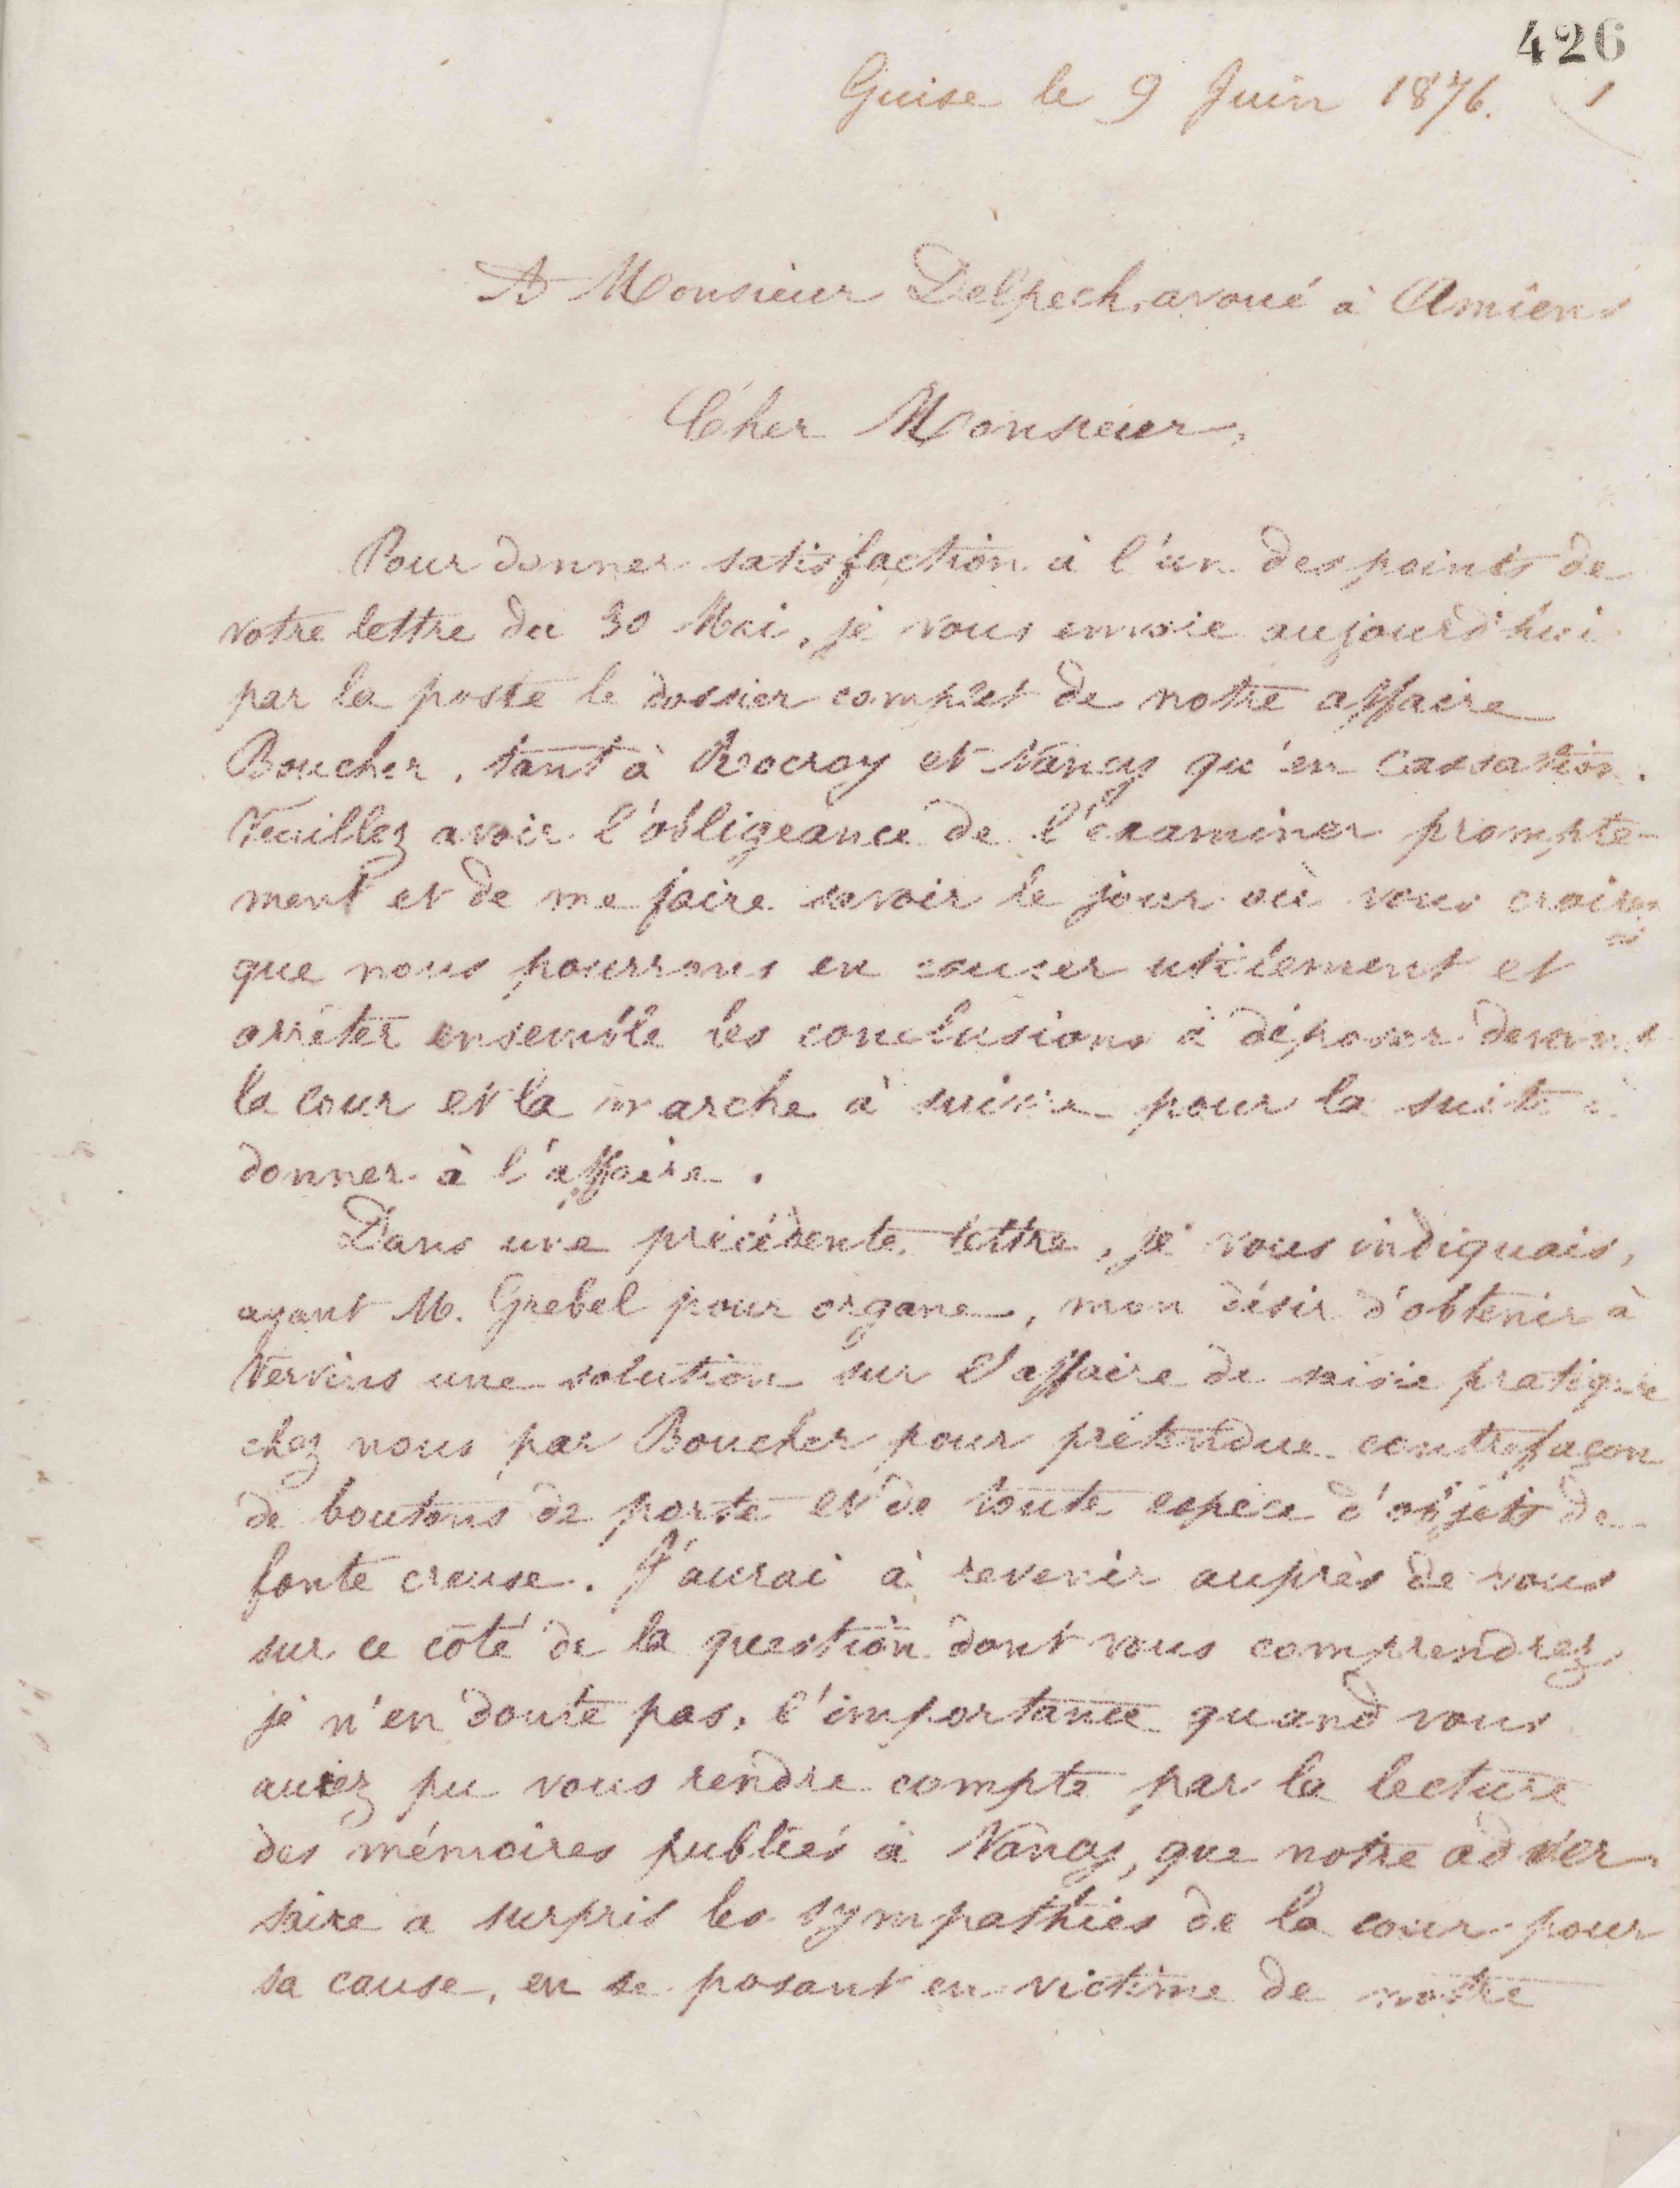 426
Guise le 9 Juin 1876. 1
A Monsieur Delpech, avoué à Amiens
Cher Monsieur,
Pour donner satisfaction à l'un des points de
votre lettre du 30 Mai, je vous envoie aujourd'hui
par la poste le dossier complet de notre affaire
Boucher, tant à Rocroy et Nancy qu'en Cassation.
Veuillez avoir l'obligeance de l'examiner prompte-
ment et de me faire savoir le jour où vous croirez
que nous pourrons en causer utilement et
arrêter ensemble les conclusions à déposer devant
la cour et la marche à suivre pour la suite à
donner à l'affaire.
Dans une précédente lettre, je vous indiquais,
ayant M. Grebel pour organe, mon désir d'obtenir à
Vervins une solution sur l'affaire de saisie pratiquée
chez nous par Boucher pour prétendue contrefaçon
de boutons de porte et de toute espèce d'objets de
fonte creuse. J'aurai à revenir auprès de vous
sur ce côté de la question dont vous comprendrez
je n'en doute pas, l'importance quand vous
aurez pu vous rendre compte par la lecture
des mémoires publiés à Nancy, que notre adver-
saire a surpris les sympathies de la cour pour
sa cause, en se posant en victime de notre